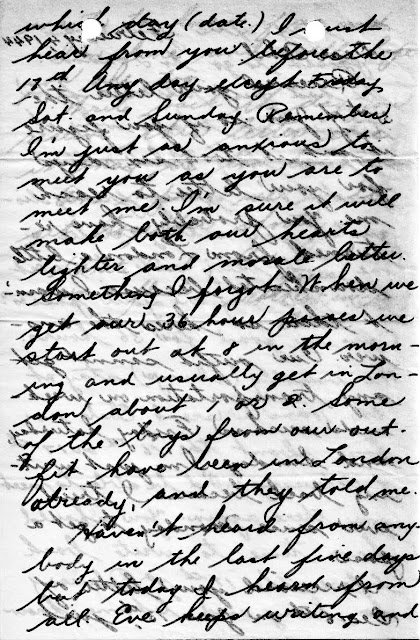 which day (date.) I must
hear from you before the
17th Any day except today,
Sat. and Sunday. Remember,
I'm just as anxious to
meet you as you are to
meet me. I'm sure it will
make both our hearts
lighter and morale better.
Something I forgot. When we
get our 36 hour passes we
start out at 8 in the morn-
ing and usually get in Lon-
don about 1 or 2. Some
of the boys from our out-
fit have been in London
already, and they told me.
Haven't heard from any
body in the last five days
but today I heard from
all. Eve keeps writing and